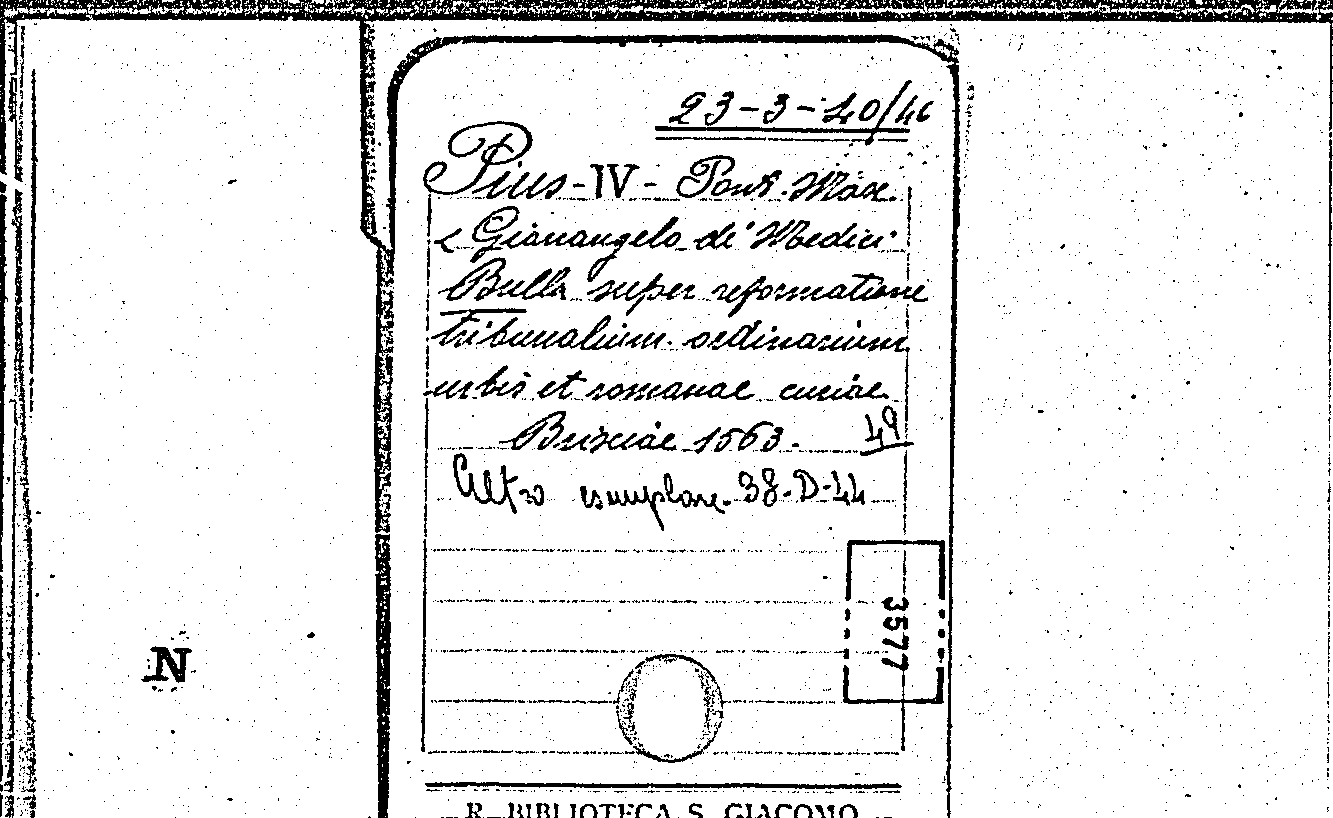 23-3-40/46
Pius-IV- Pont. Max.
< Gianangelo de' Medici
Bulla super reformatione
tribunalium ordinarium
urbis et romanae curiae
Brixiae 1563. 49
Altro esemplare. 38-D-44
3577
N
R. BIBLIOTECA S. GIACOMO